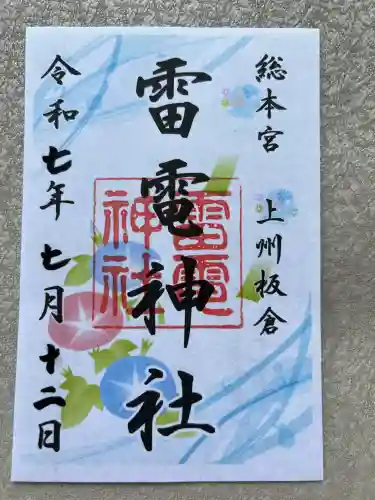 総本宮 上州板倉
雷電神社
雷電
神社
令和七年七月十二日